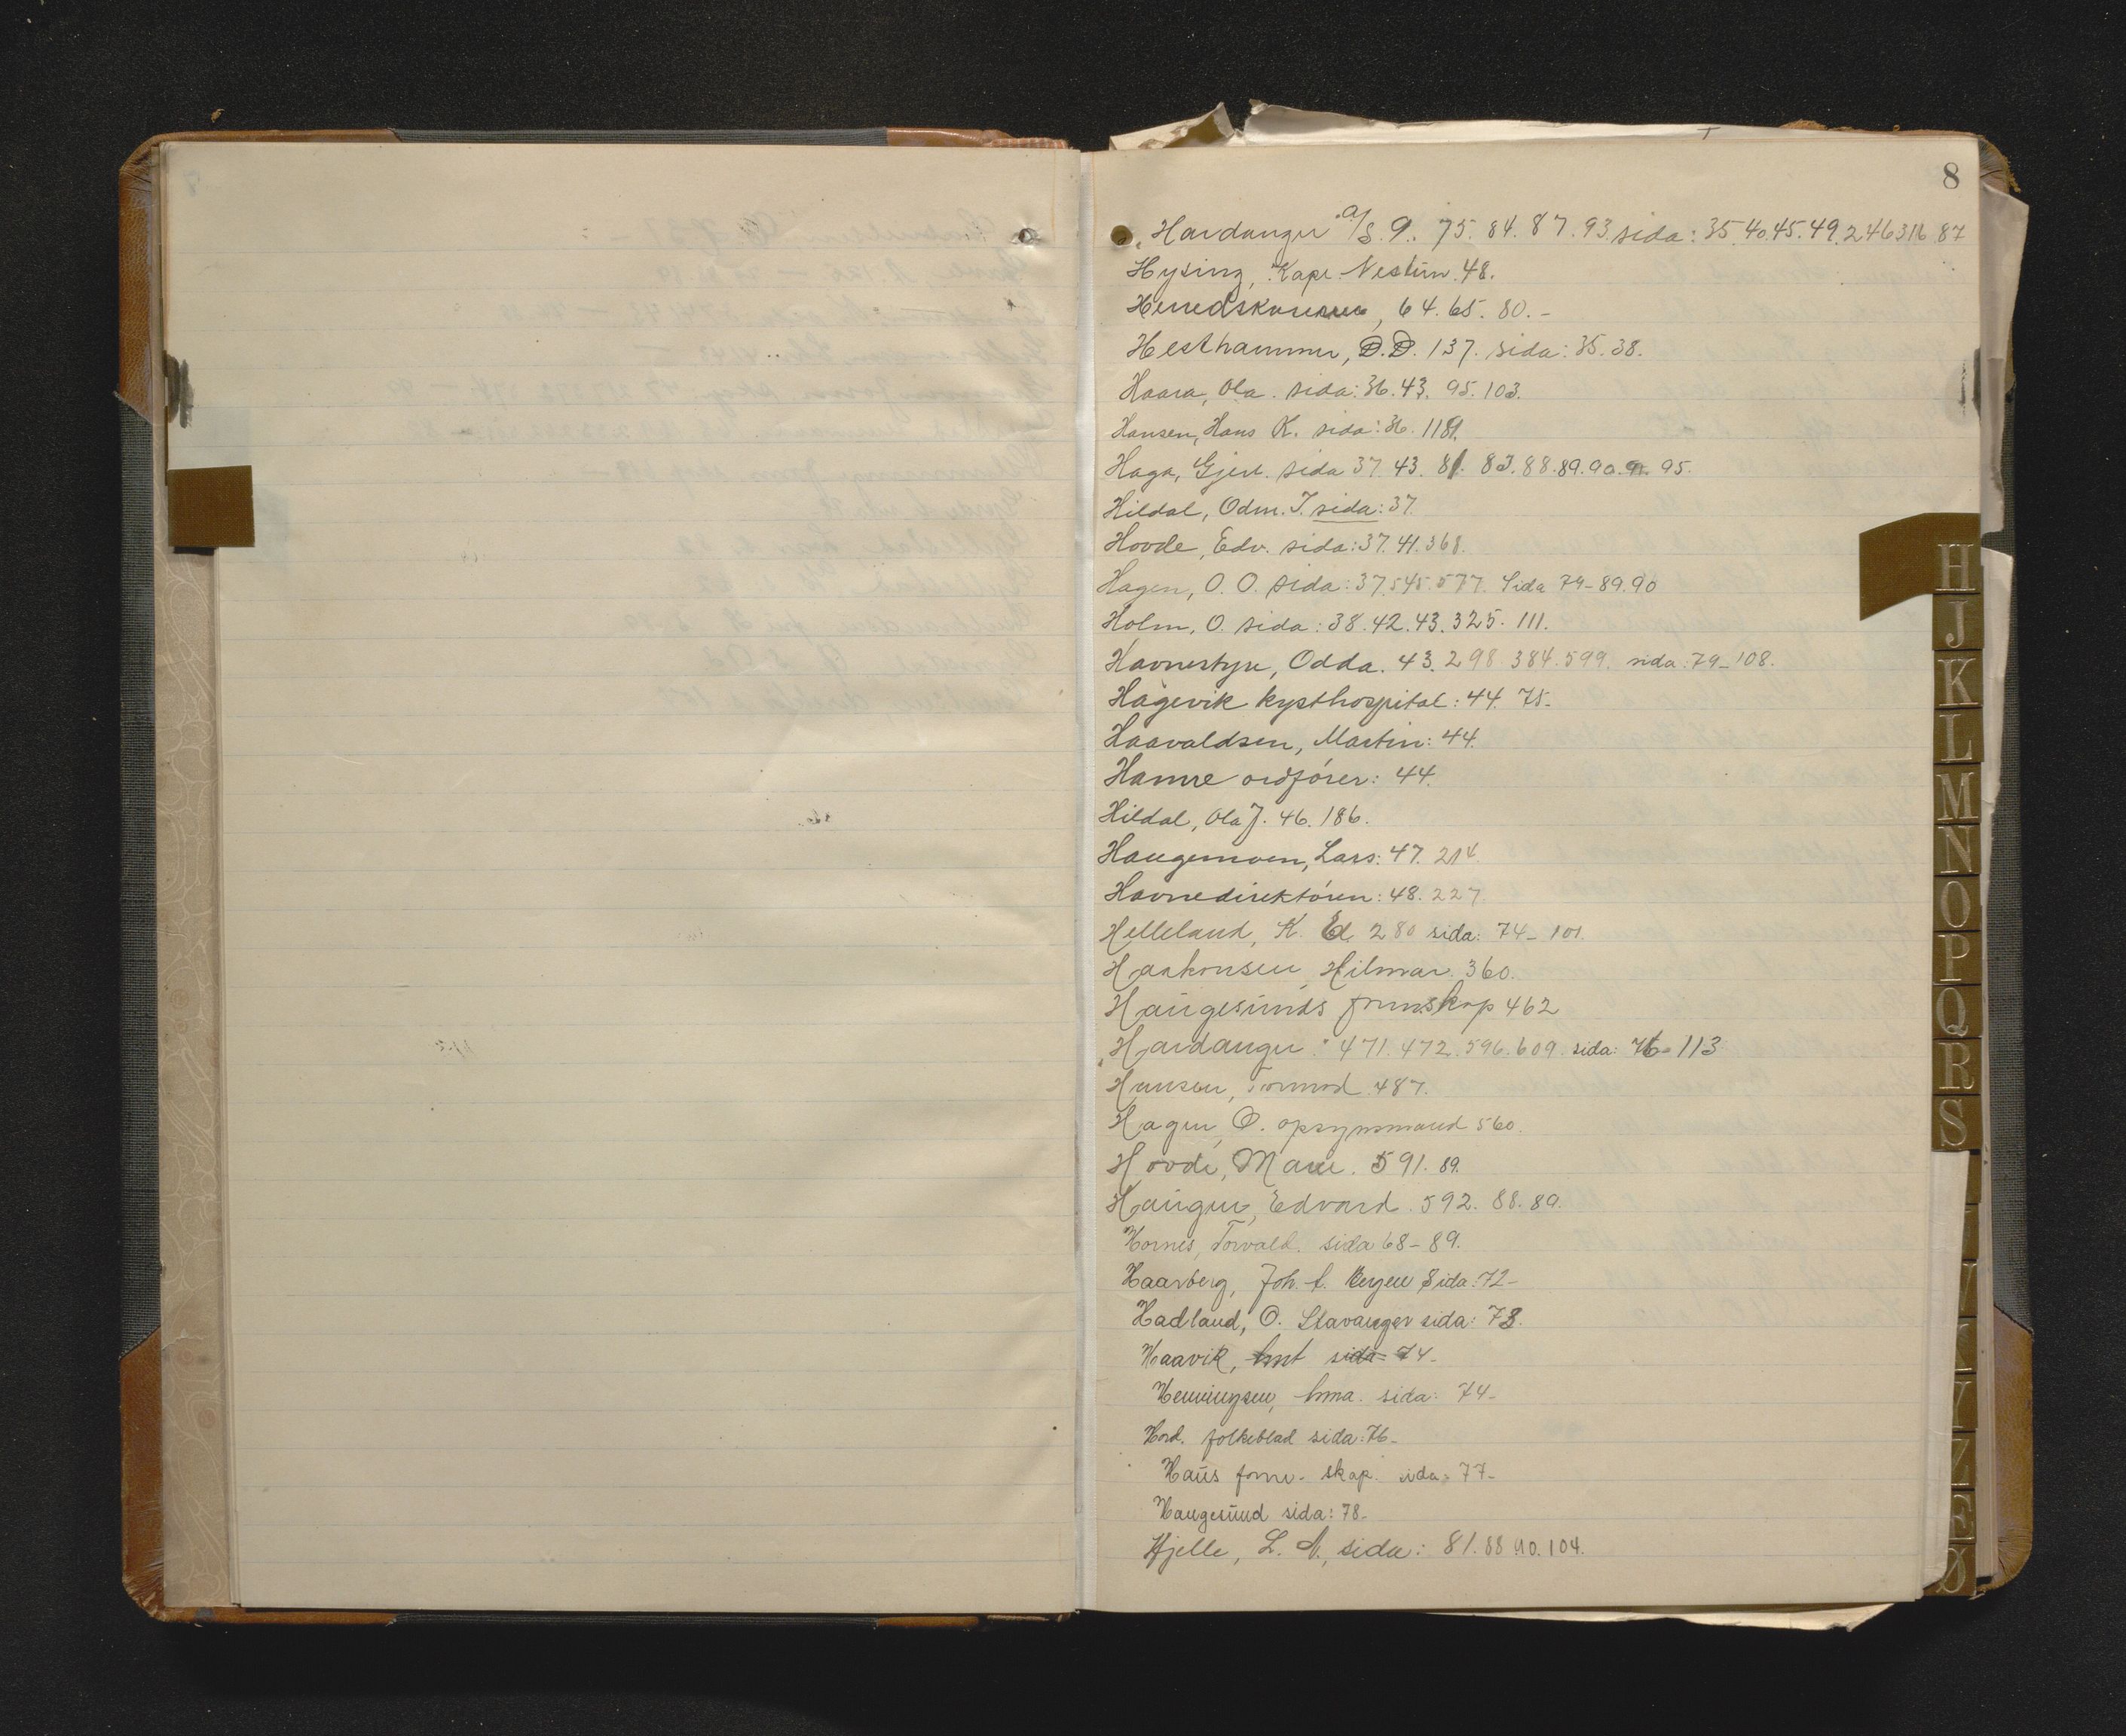 8
„Hardanger" A/S 9. 75. 84. 87. 93. sida: 35. 40. 45. 49. 246 316 87
Hysing, Kapt. Nestun. 48.
64. 65. 80. -
Hesthammer, D. D. 137. sida: 35. 38.
Haara, Ola. sida: 36. 43. 95. 103.
Hansen, Hans K. sida: 36.
Haga, Gjert. sida 37. 43. 81. 83. 88. 89. 90. 95.
Hildal, Odm. J. sida: 37.
Hovde, Edv. sida: 37. 41. 368.
Hagen, O. O. sida: 37. 545. 577. Sida 74-89.90
Holm, O. sida: 38. 42. 43. 325. 111.
Havnestyre, Odda. 43. 298. 384. 599. sida: 79-108.
Hagevik kysthospital: 44. 75-
Haavaldsen, Martin: 44.
Hamre ordfører: 44.
Hildal, Ola J. 46. 186.
Haugemoen, Lars: 47. 214.
Havnedirektøren: 48. 227.
Helleland, K. Ed. 280 sida: 74- 101.
Haakonsen, Hilmar. 360.
Haugesunds formskap 462
„Hardanger" 471. 472. 596. 609. sida: 76-113
Hansen, Tormod 487.
Hagen, O. opsynsmand 560.
Hovde, 591. 89.
Haugen, Edvard. 592. 88. 89.
Hornes, Torvald. sida 68-89.
Haarberg, Joh. Bergen Sida: 72-
Hadland, O. Stavanger sida: 73.
Haavik, sida: 74-
Henningsen, sida: 74-
Hord. folkeblad sida: 76-
Haus form- skap. sida: 77-
Haugesund sida: 78-
Hjelle, L. sida: 81. 88 90. 104.
H
J
K
L
M
N
O
P
Q
R
S
Y
Z
Æ
Ø